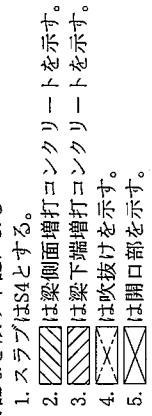 1. スラブはS4とする。
2. は梁側面増打コンクリートを示す。
3. は梁下端増打コンクリートを示す。
4. は吹抜けを示す。
5. は開口部を示す。